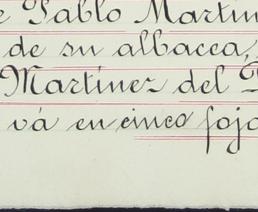 e Pablo Martin
de su albacea,
Martinez del P
vá en cinco foja